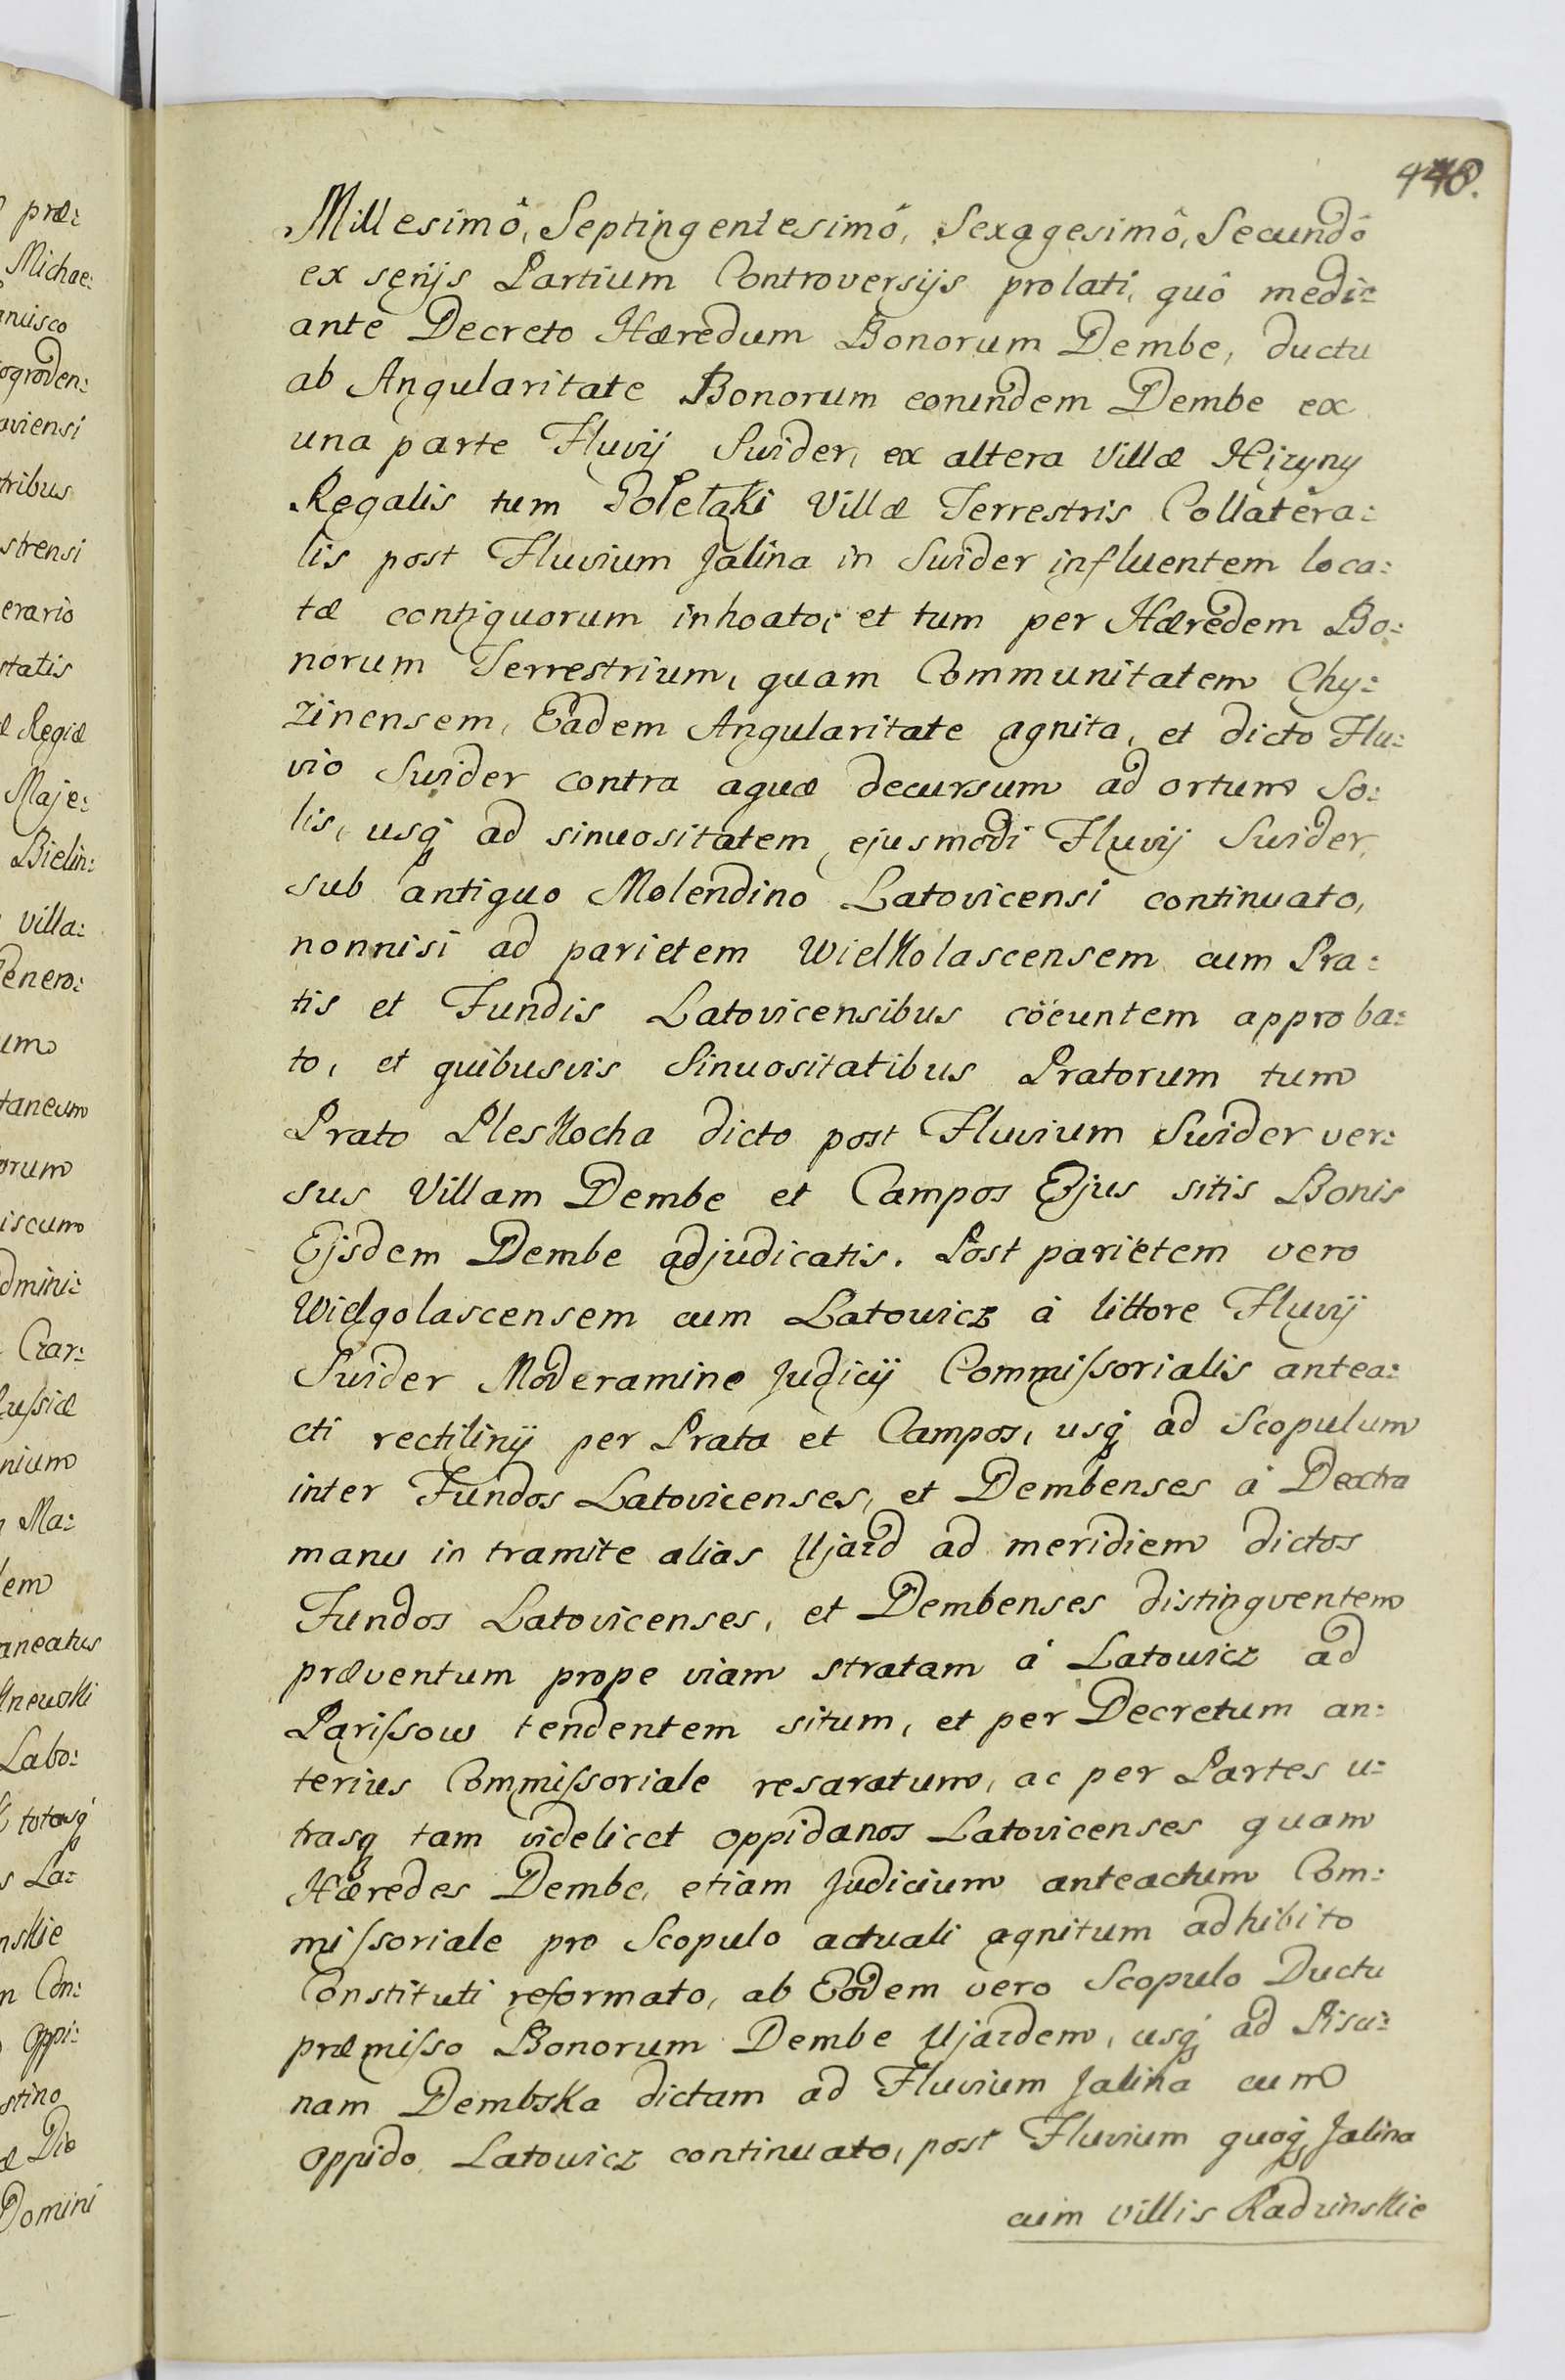 præ:
Michae:
ancisco
ogroden:
oviensi
tribus
strensi
erario
statis
æ Regiæ
Maje:
Bielin:
villa:
Genero:
um
taneum
orum
iscum
dmini:
Czar:
Russiæ
nium
Ma:
lem
aneatus
Knewski
Labo:
totasq
s La:
nskie
n Con:
Oppi:
stino
æ Die
Domini
440.
Millesimô, Septingentesimô, Sexagesimô, Secundô
ex serijs Partium Controversijs prolati, quô medi:
ante Decreto Hæredum Bonorum Dembe, ductu
ab Angularitate Bonorum eorundem Dembe ex
una parte Fluvij Swider, ex altera Villæ Hizyny
Regalis tum Poletaki Villæ Terrestris Collatera:
lis post Fluvium Jalina in Swider influentem loca:
tæ contiguorum inhoato; et tum per Hæredem Bo:
norum Terrestrium, quam Communitatem Chy:
zinensem, Eadem Angularitate agnita, et dicto Flu:
vio Swider contra aquæ decursum ad ortum So:
lis, usq ad sinuositatem ejusmodi Fluvij Swider,
sub antiquo Molendino Latovicensi continuato,
nonnisi ad parietem Wielkolascensem cum Pra:
tis et Fundis Latovicensibus cöeuntem approba:
to, et quibusvis Sinuositatibus Pratorum tum
Prato Pleskocha dicto post Fluvium Swider ver:
sus Villam Dembe et Campos Ejus sitis Bonis
Ejsdem Dembe adjudicatis. Post parietem vero
Wielgolascensem cum Latowicz à littore Fluvij
Swider Moderamine Judicij Commissorialis antea:
cti rectilinij per Prata et Campos, usq ad Scopulum
inter Fundos Latovicenses, et Dembenses à Dextra
manu in tramite alias Ujazd ad meridiem dictos
Fundos Latovicenses, et Dembenses distinguentem
præventum prope viam stratam à Latowicz ad
Parissow tendentem situm, et per Decretum an:
terius Commissoriale resaratum, ac per Partes u:
trasq tam videlicet Oppidanos Latovicenses quam
Hæredes Dembe, etiam Judicium anteactum Com:
missoriale pro Scopulo actuali agnitum adhibito
Constituti reformato, ab Eodem vero Scopulo Ductu
præmisso Bonorum Dembe Ujazdem, usq ad Pisci:
nam Dembska dictam ad Fluvium Jalina cum
Oppido Latowicz continuato, post Fluvium quoq Jalina
cum villis Radzinskie